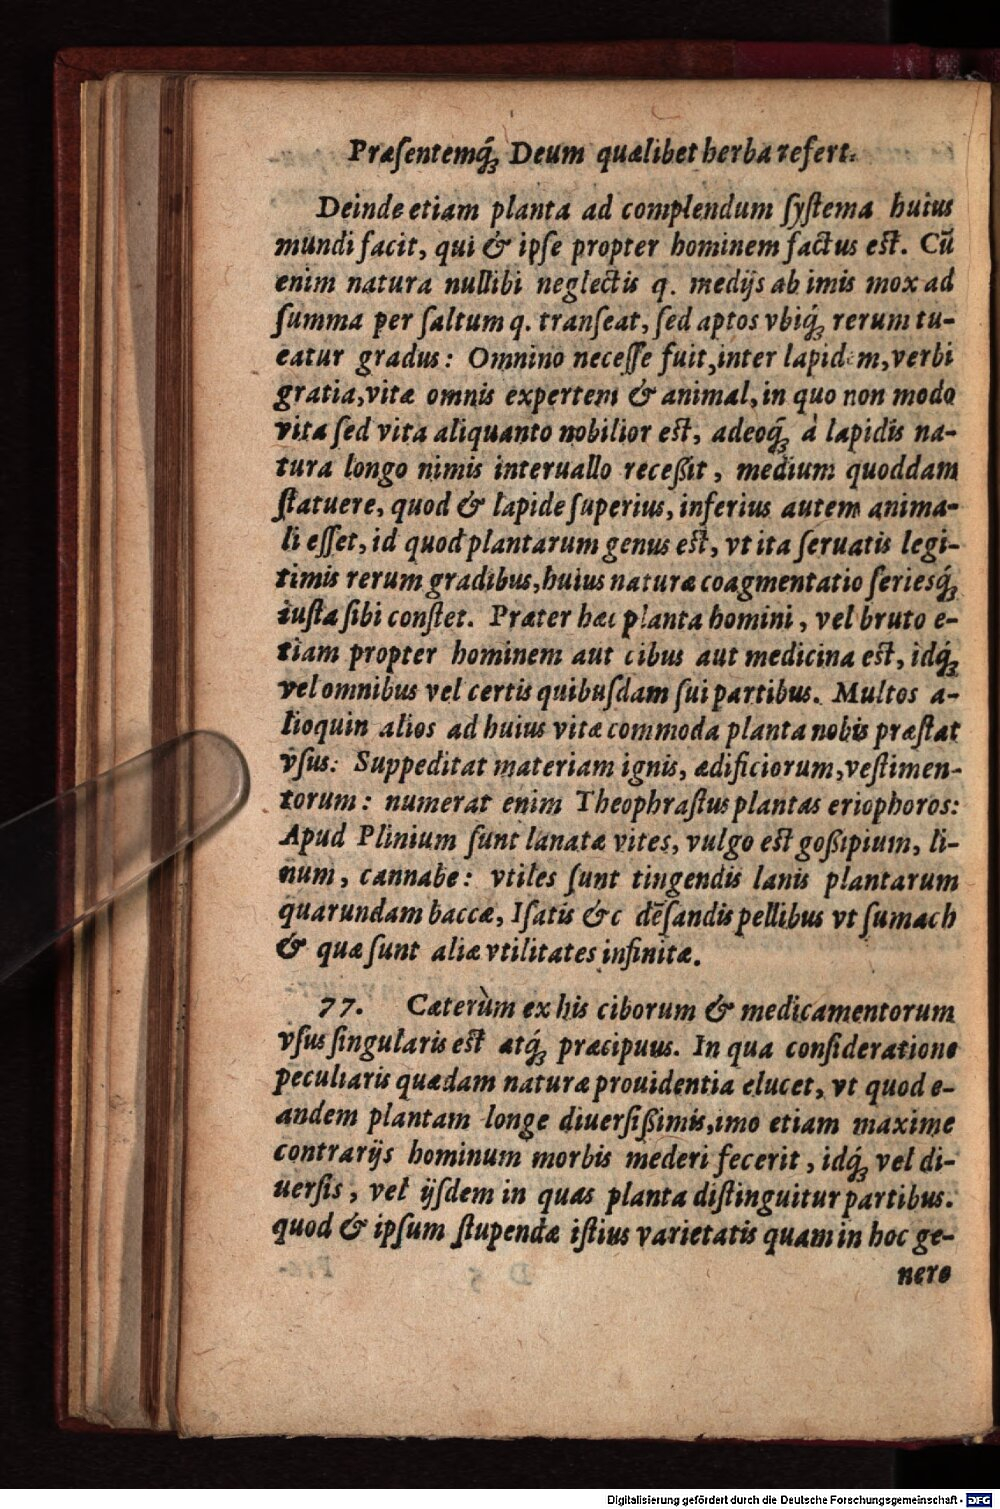 Præsentemq́ꝫ Deum quælibet herba refert.
Deinde etiam planta ad complendum ſyſtema huius
mundi facit, qui & ipſe propter hominem factus eſt. Cũ
enim natura nullibi neglectis q. medijs ab imis mox ad
ſumma per ſaltum q. tranſeat, ſed aptos vbiq́ꝫ rerum tu-
eatur gradus: Omnino neceſſe fuit, inter lapidem, verbi
gratia, vitæ omnis expertem & animal, in quo non modo
vita ſed vita aliquanto nobilior eſt, adeoq́ꝫ à lapidis na-
tura longo nimis interuallo receßit, medium quoddam
ſtatuere, quod & lapide ſuperius, inferius autem anima-
li eſſet, id quod plantarum genus eſt, vt ita ſeruatis legi-
timis rerum gradibus, huius naturæ coagmentatio ſeriesq́ꝫ
iuſta ſibi conſtet. Præter hæc planta homini, vel bruto e-
tiam propter hominem aut cibus aut medicina eſt, idq́ꝫ
vel omnibus vel certis quibuſdam ſui partibus. Multos a-
lioquin alios ad huius vitæ commoda planta nobis præſtat
vſus: Suppeditat materiam ignis, ædificiorum, veſtimen-
torum: numerat enim Theophraſtus plantas eriophoros:
Apud Plinium ſunt lanatæ vites, vulgo eſt goßipium, li-
num, cannabe: vtiles ſunt tingendis lanis plantarum
quarundam baccæ, Iſatis &c dẽſandis pellibus vt ſumach
& quæ ſunt aliæ vtilitates infinitæ.
77. Cæterùm ex his ciborum & medicamentorum
vſus ſingularis eſt atq́ꝫ præcipuus. In qua conſideratione
peculiaris quædam naturæ prouidentia elucet, vt quod e-
andem plantam longe diuerſißimis, imo etiam maxime
contrarijs hominum morbis mederi fecerit, idq́ꝫ vel di-
uerſis, vel ijſdem in quas planta diſtinguitur partibus.
quod & ipſum ſtupendæ iſtius varietatis quam in hoc ge-
nere
Digitalisierung gefördert durch die Deutsche Forschungsgemeinschaft - DFG